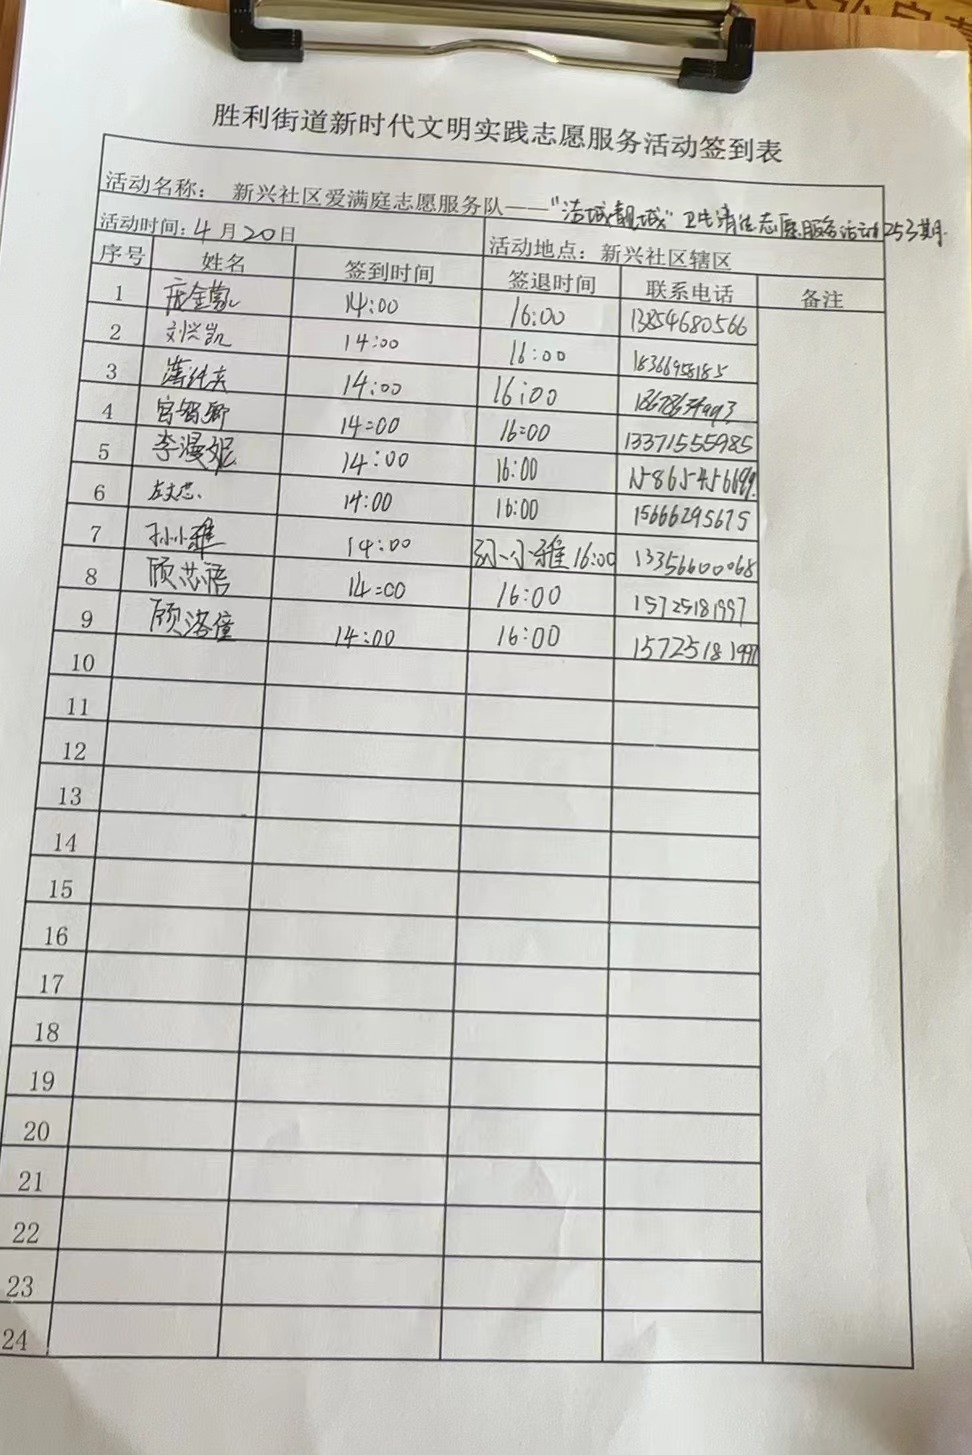 胜利街道新时代文明实践志愿服务活动签到表
活动名称: 新兴社区爱满庭志愿服务队——“洁城靓城”卫生清洁志愿服务活动253期
活动时间: 4月20日 活动地点: 新兴社区辖区
序号 姓名 签到时间 签退时间 联系电话 备注
1 庞金凯 14:00 16:00 13854680566
2 刘兴凯 14:00 16:00 18366958185
3 14:00 16:00
4 14:00 16:00 13371555985
5 李漫妮 14:00 16:00
6 14:00 16:00 15666295675
7 孙小雅 14:00 孙小雅 16:00 13356600068
8 顾芯语 14:00 16:00 15725181997
9 顾洛僮 14:00 16:00 15725181997
10
11
12
13
14
15
16
17
18
19
20
21
22
23
24